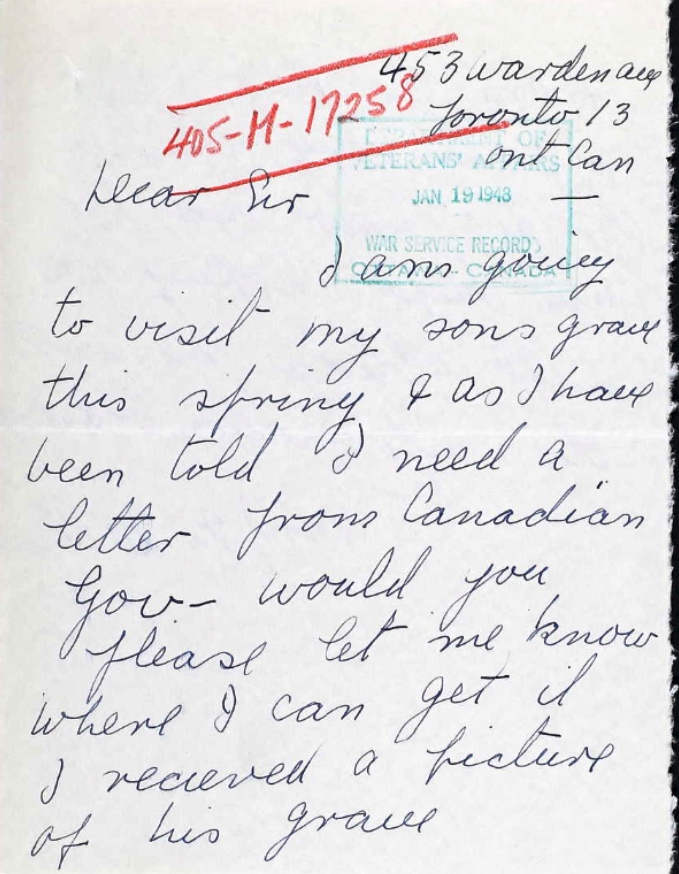 453 Warden ave
Toronto 13
Ont Can
405-M-17258
DEPARTMENT OF
VETERANS' AFFAIRS
JAN 19 1948
WAR SERVICE RECORDS
OTTAWA CANADA
Dear Sir
I am going
to visit my sons grave
this spring & as I have
been told I need a
letter from Canadian
Gov- would you
please let me know
where I can get it
I recieved a picture
of his grave